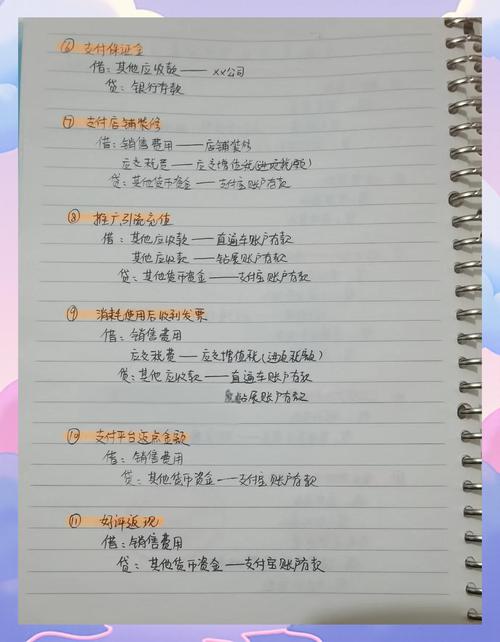 ⑥ 支付保证金
借：其他应收款——xx公司
贷：银行存款
⑦ 支付店铺装修
借：销售费用——店铺装修
应交税费——应交增值税(进项税额)
贷：其他货币资金——支付宝账户存款
⑧ 推广引流充值
借：其他应收款——直通车账户存款
其他应收款——钻展账户存款
贷：其他货币资金——支付宝账户存款
⑨ 消耗使用后收到发票
借：销售费用
应交税费——应交增值税(进项税额)
贷：其他应收款——直通车账户存款
钻展账户存款
⑩ 支付平台返点金额
借：销售费用
贷：其他货币资金——支付宝账户存款
⑪ 好评返现
借：销售费用
贷：其他货币资金——支付宝账户存款